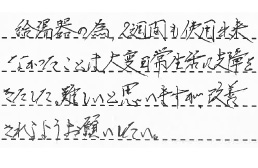 給湯器の為、2週間も使用出来
なかったことは大変日常生活に支障を
きたして、難しいと思いますが、改善
されるようお願いしたい。